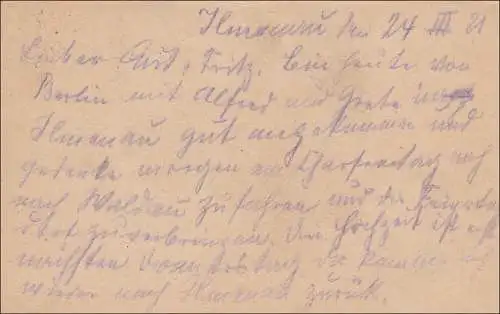 Ilmenau den 24 III 21
Lieber Curt, Fritz. Bin heute von
Berlin mit Alfred und Grete in
Ilmenau gut angekommen und
gedenke morgen am Charfreitag
nach Waldau zu fahren und die Feiertage
dort zuzubringen. Die Hochzeit ist erst
nächsten Donnerstag da kommen
wieder nach Ilmenau zurück.